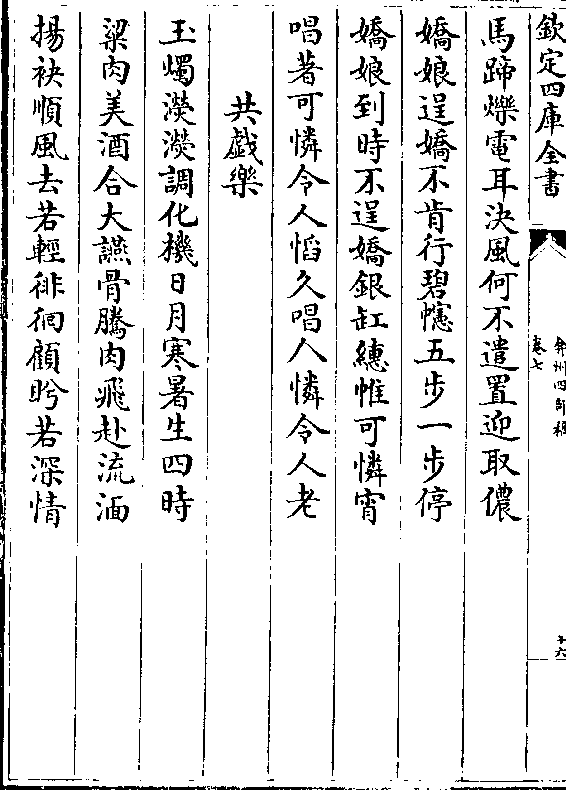 欽定四庫全書
弇州四部稿
卷七
十六
馬蹄爍電耳決風何不遣置迎取儂
嬌娘逞嬌不肯行碧幰五步一步停
嬌娘到時不逞嬌銀缸繐帷可憐宵
唱著可憐令人慆久唱人憐令人老
共戲樂
玉燭濙濙調化機日月寒暑生四時
粱肉美酒合大讌骨騰肉飛赴流湎
揚袂順風去若輕徘徊顧盻若深情